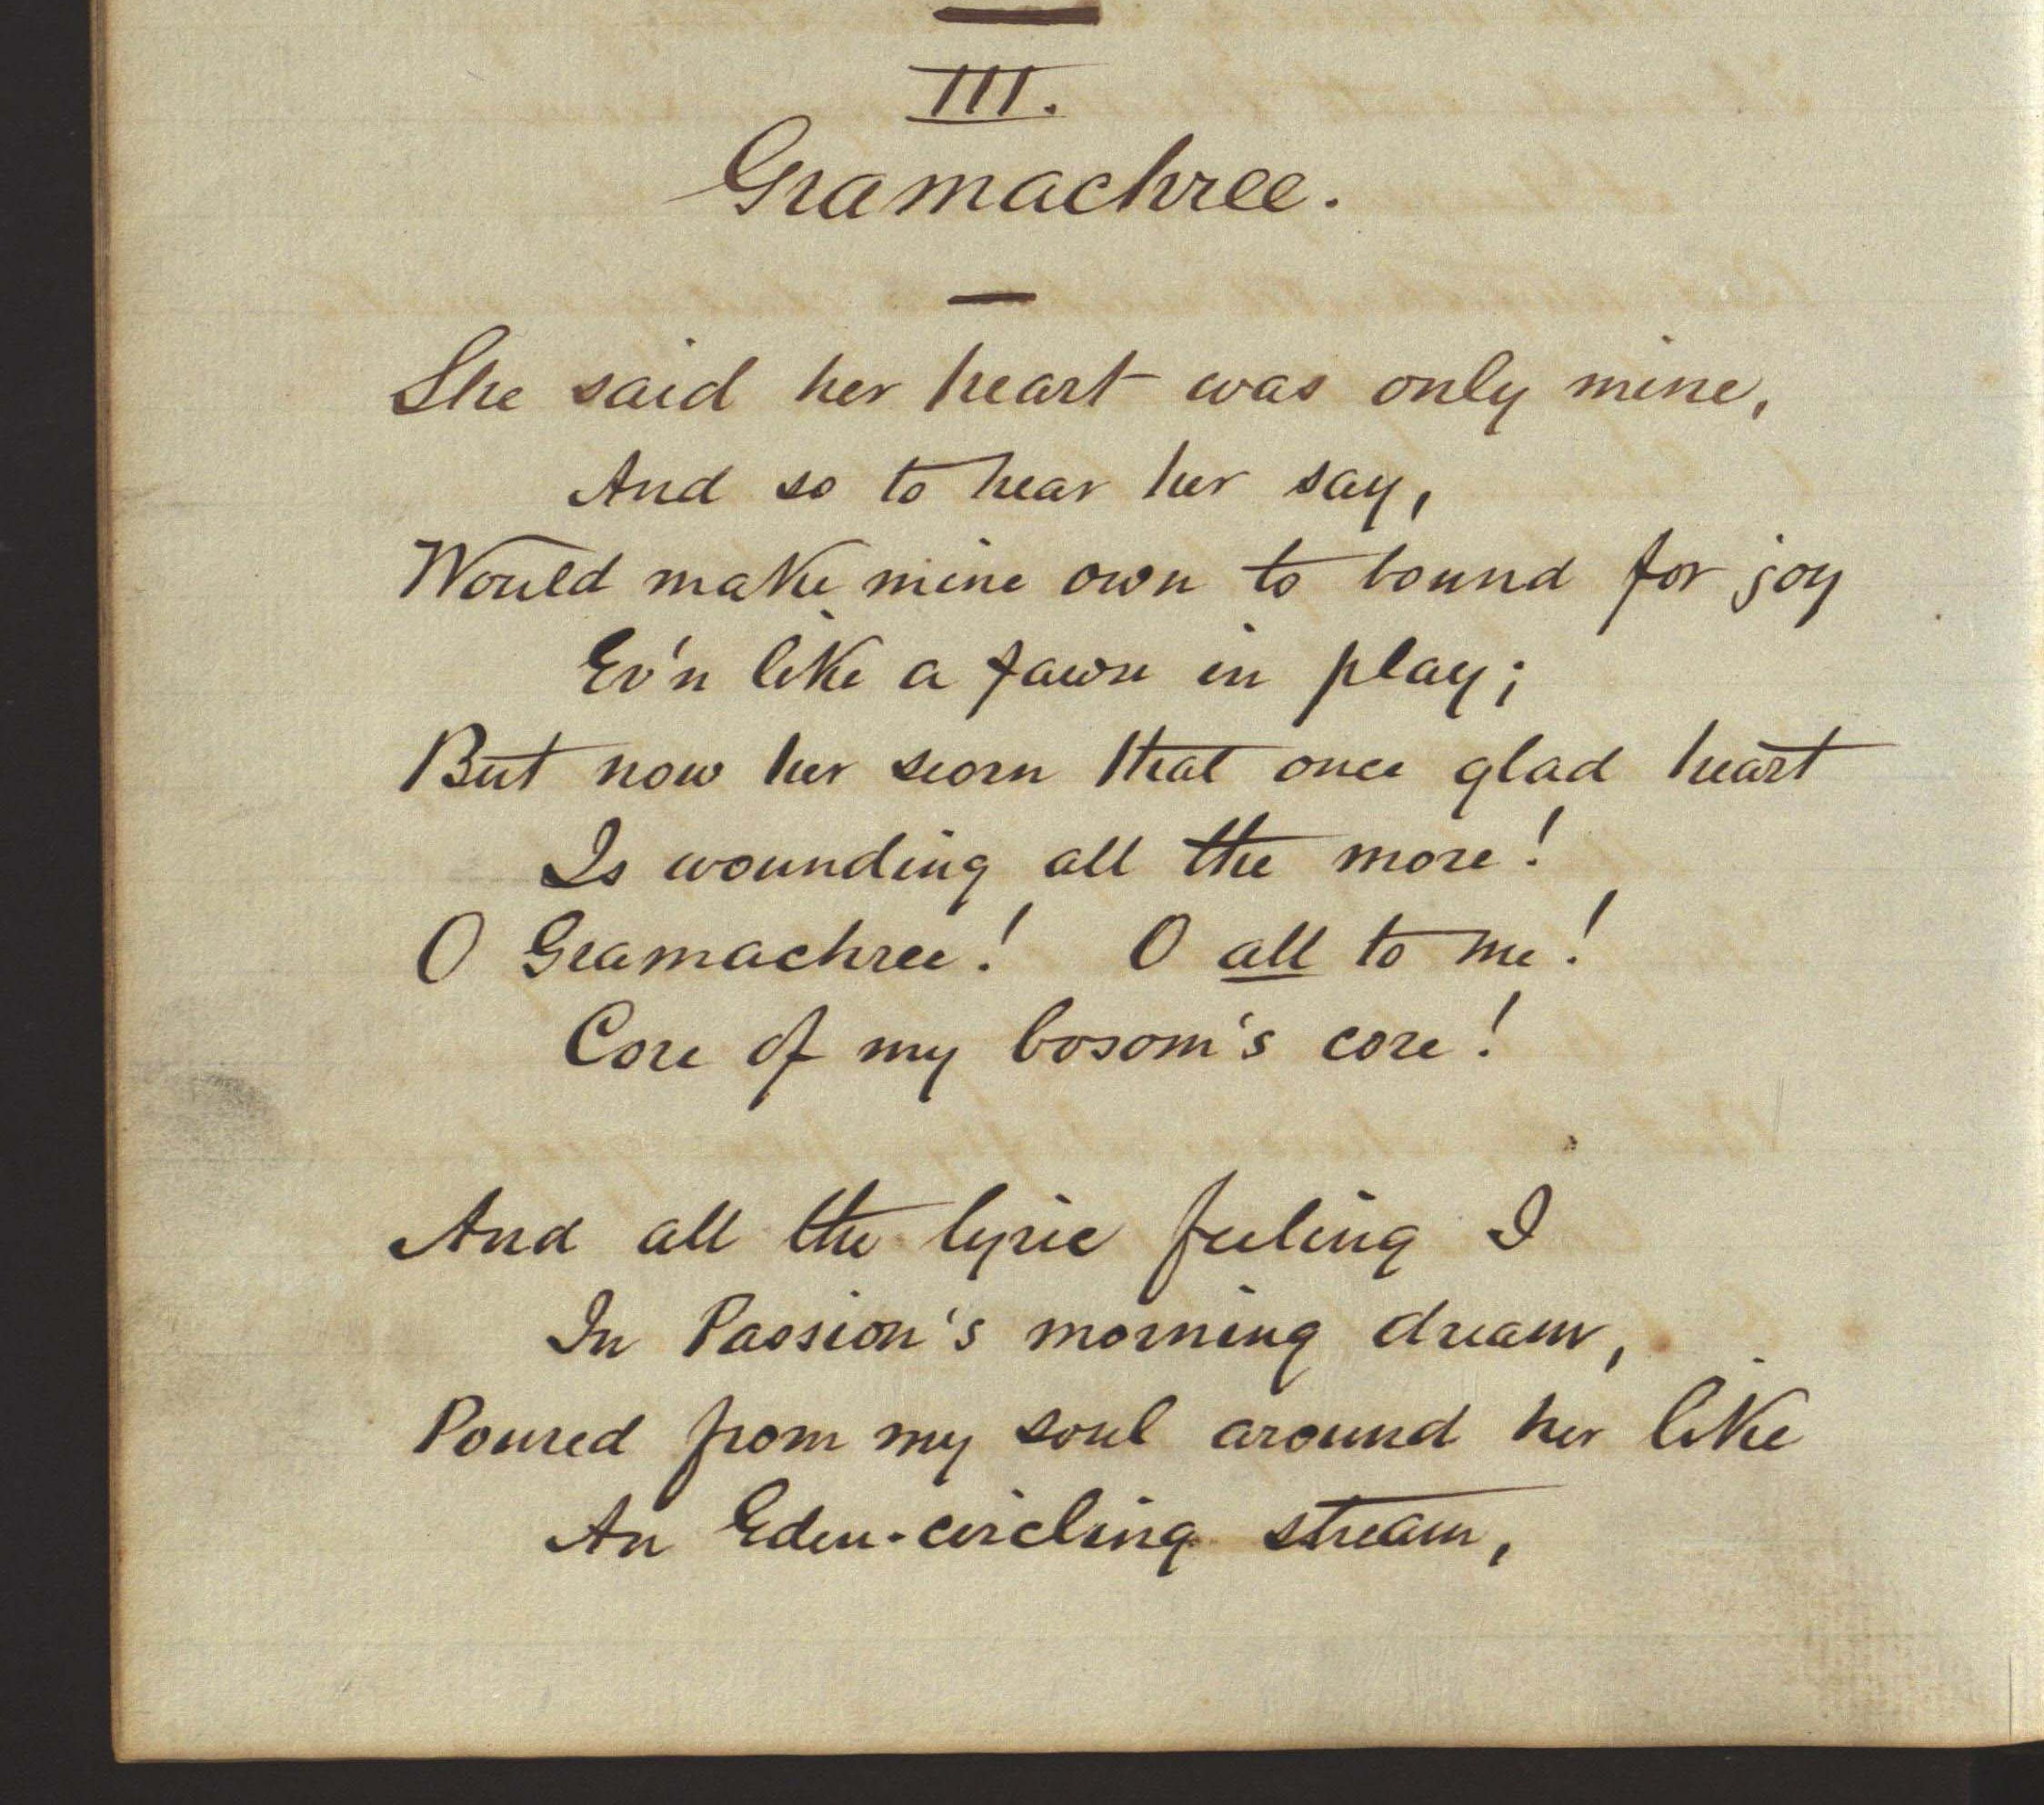 III.
Gramachree.
She said her heart was only mine,
And so to hear her say,
Would make mine own to bound for joy
Ev'n like a fawn in play;
But now her scorn that once glad heart
Is wounding all the more!
O Gramachree! O all to me!
Core of my bosom's core!
And all the lyric feeling I
In Passion's morning dream,
Poured from my soul around her like
An Eden-circling stream,